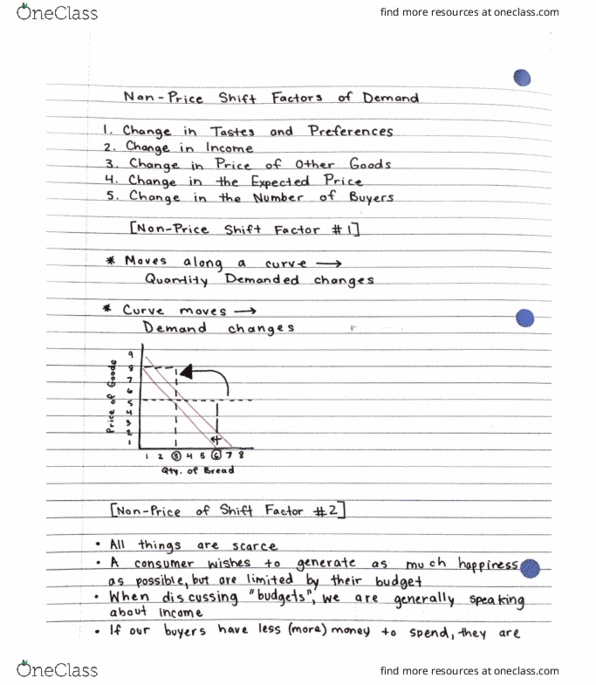 OneClass
find more resources at oneclass.com
Non-Price Shift Factors of Demand
1. Change in Tastes and Preferences
2. Change in Income
3. Change in Price of Other Goods
4. Change in the Expected Price
5. Change in the Number of Buyers
[Non-Price Shift Factor #1]
* Moves along a curve →
Quantity Demanded changes
* Curve moves →
Demand changes
Price of Goods
9
8
7
6
5
4
3
2
1
1 2 3 4 5 6 7 8
Qty. of Bread
[Non-Price of Shift Factor #2]
• All things are scarce
• A consumer wishes to generate as much happiness
as possible, but are limited by their budget
• When discussing "budgets", we are generally speaking
about income
• If our buyers have less (more) money to spend, they are
OneClass
find more resources at oneclass.com